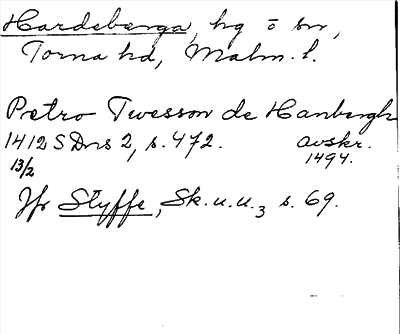 Hardeberga, hg o sn,
Torna hd, Malm. l.
Petro Twesson de Hanbergh
1412 SDns 2, s. 472. avskr.
13/2 1494.
Jfr Styffe, Sk.u.u.3 s. 69.